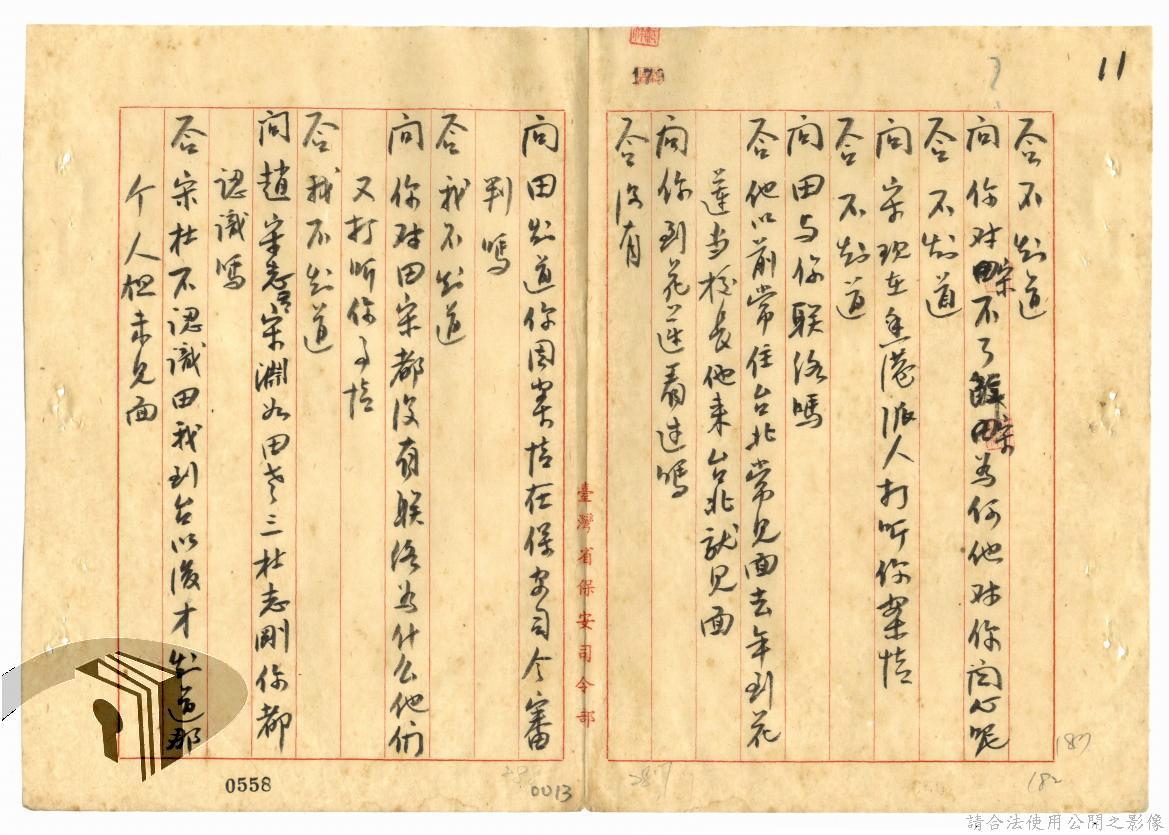 11
179
答 不知道
問 你对宋不了解宋為何他对你関心呢
答 不知道
問 宋現在香港派人打听你案情
答 不知道
問 田与你联络嗎
答 他以前常住台北常見面去年到花
蓮当校長他来台北就見面
問 你到花蓮看过嗎
答 没有
臺灣省保安司令部
問 田知道你因案情在保安司令審
判嗎
答 我不知道
問 你对田宋都没有联络為什么他们
又打听你事情
答 我不知道
問 趙宋志宋淵如田老三杜志剛你都
認識嗎
答 宋杜不認識田我到台以後才知道那
个人但未見面
0558
0013
287
182
187
請合法使用公開之影像